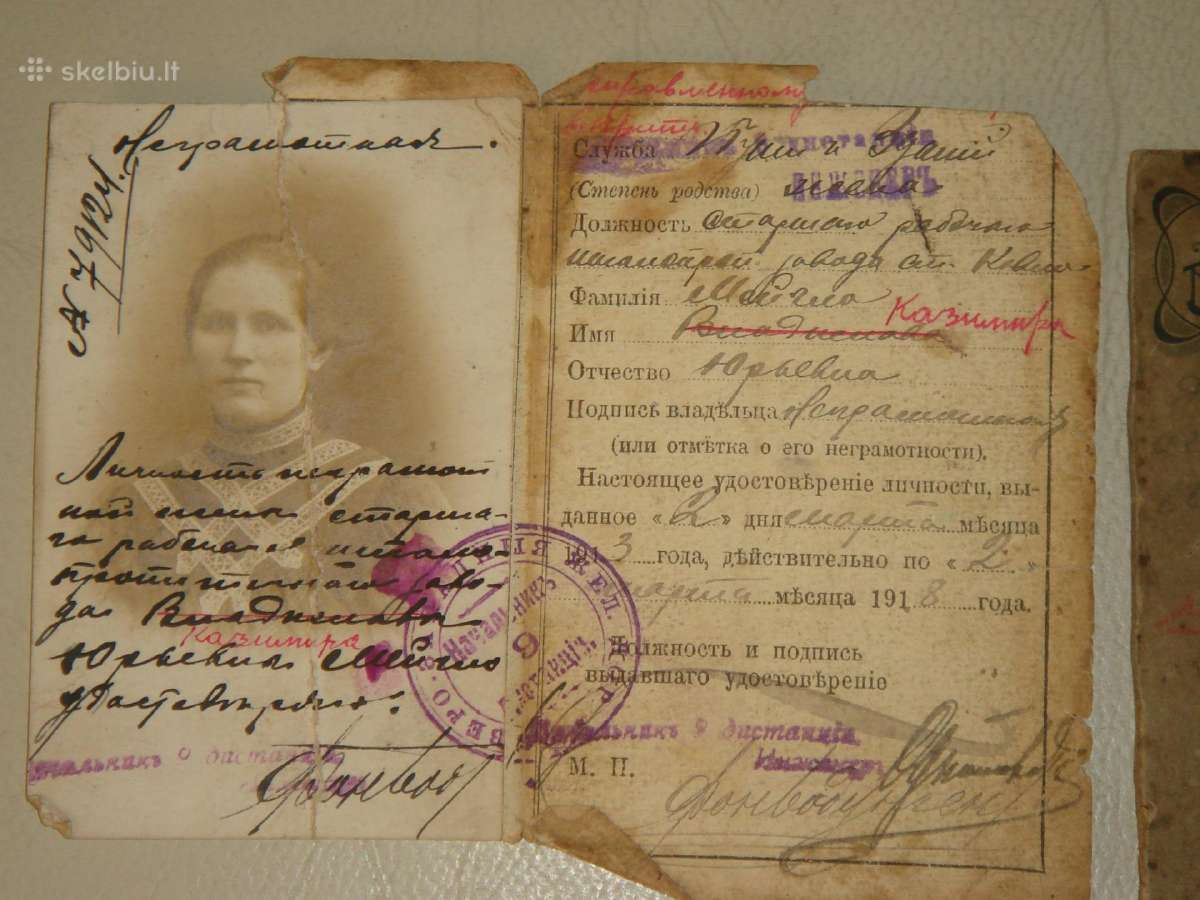 skelbiu.lt
Неграмотная.
№ 7912
Личность неграмот
ной жены старша
го рабочаго шпало
пропиточнаго заво
да Владислава
Казимира
Юрьевна
удостоверяю.
Начальникъ 9 дистанціи
исправленному
верить
Служба Пути и Зданій
Инженеръ
(Степень родства) жена
Должность Старшаго рабочаго
завода ст.
Фамилія
Имя Владислава Казимира
Отчество Юрьевна
Подпись владѣльца Неграмотная
(или отмѣтка о его неграмотности).
Настоящее удостовѣреніе личности, вы-
данное «2» дня марта мѣсяца
1913 года, дѣйствительно по «2»
марта мѣсяца 1918 года.
Должность и подпись
выдавшаго удостовѣреніе
Начальникъ 9 дистанціи
Инженеръ
М. П.
Начальникъ 9 Дистанціи.
ЖЕЛ. ДОР.